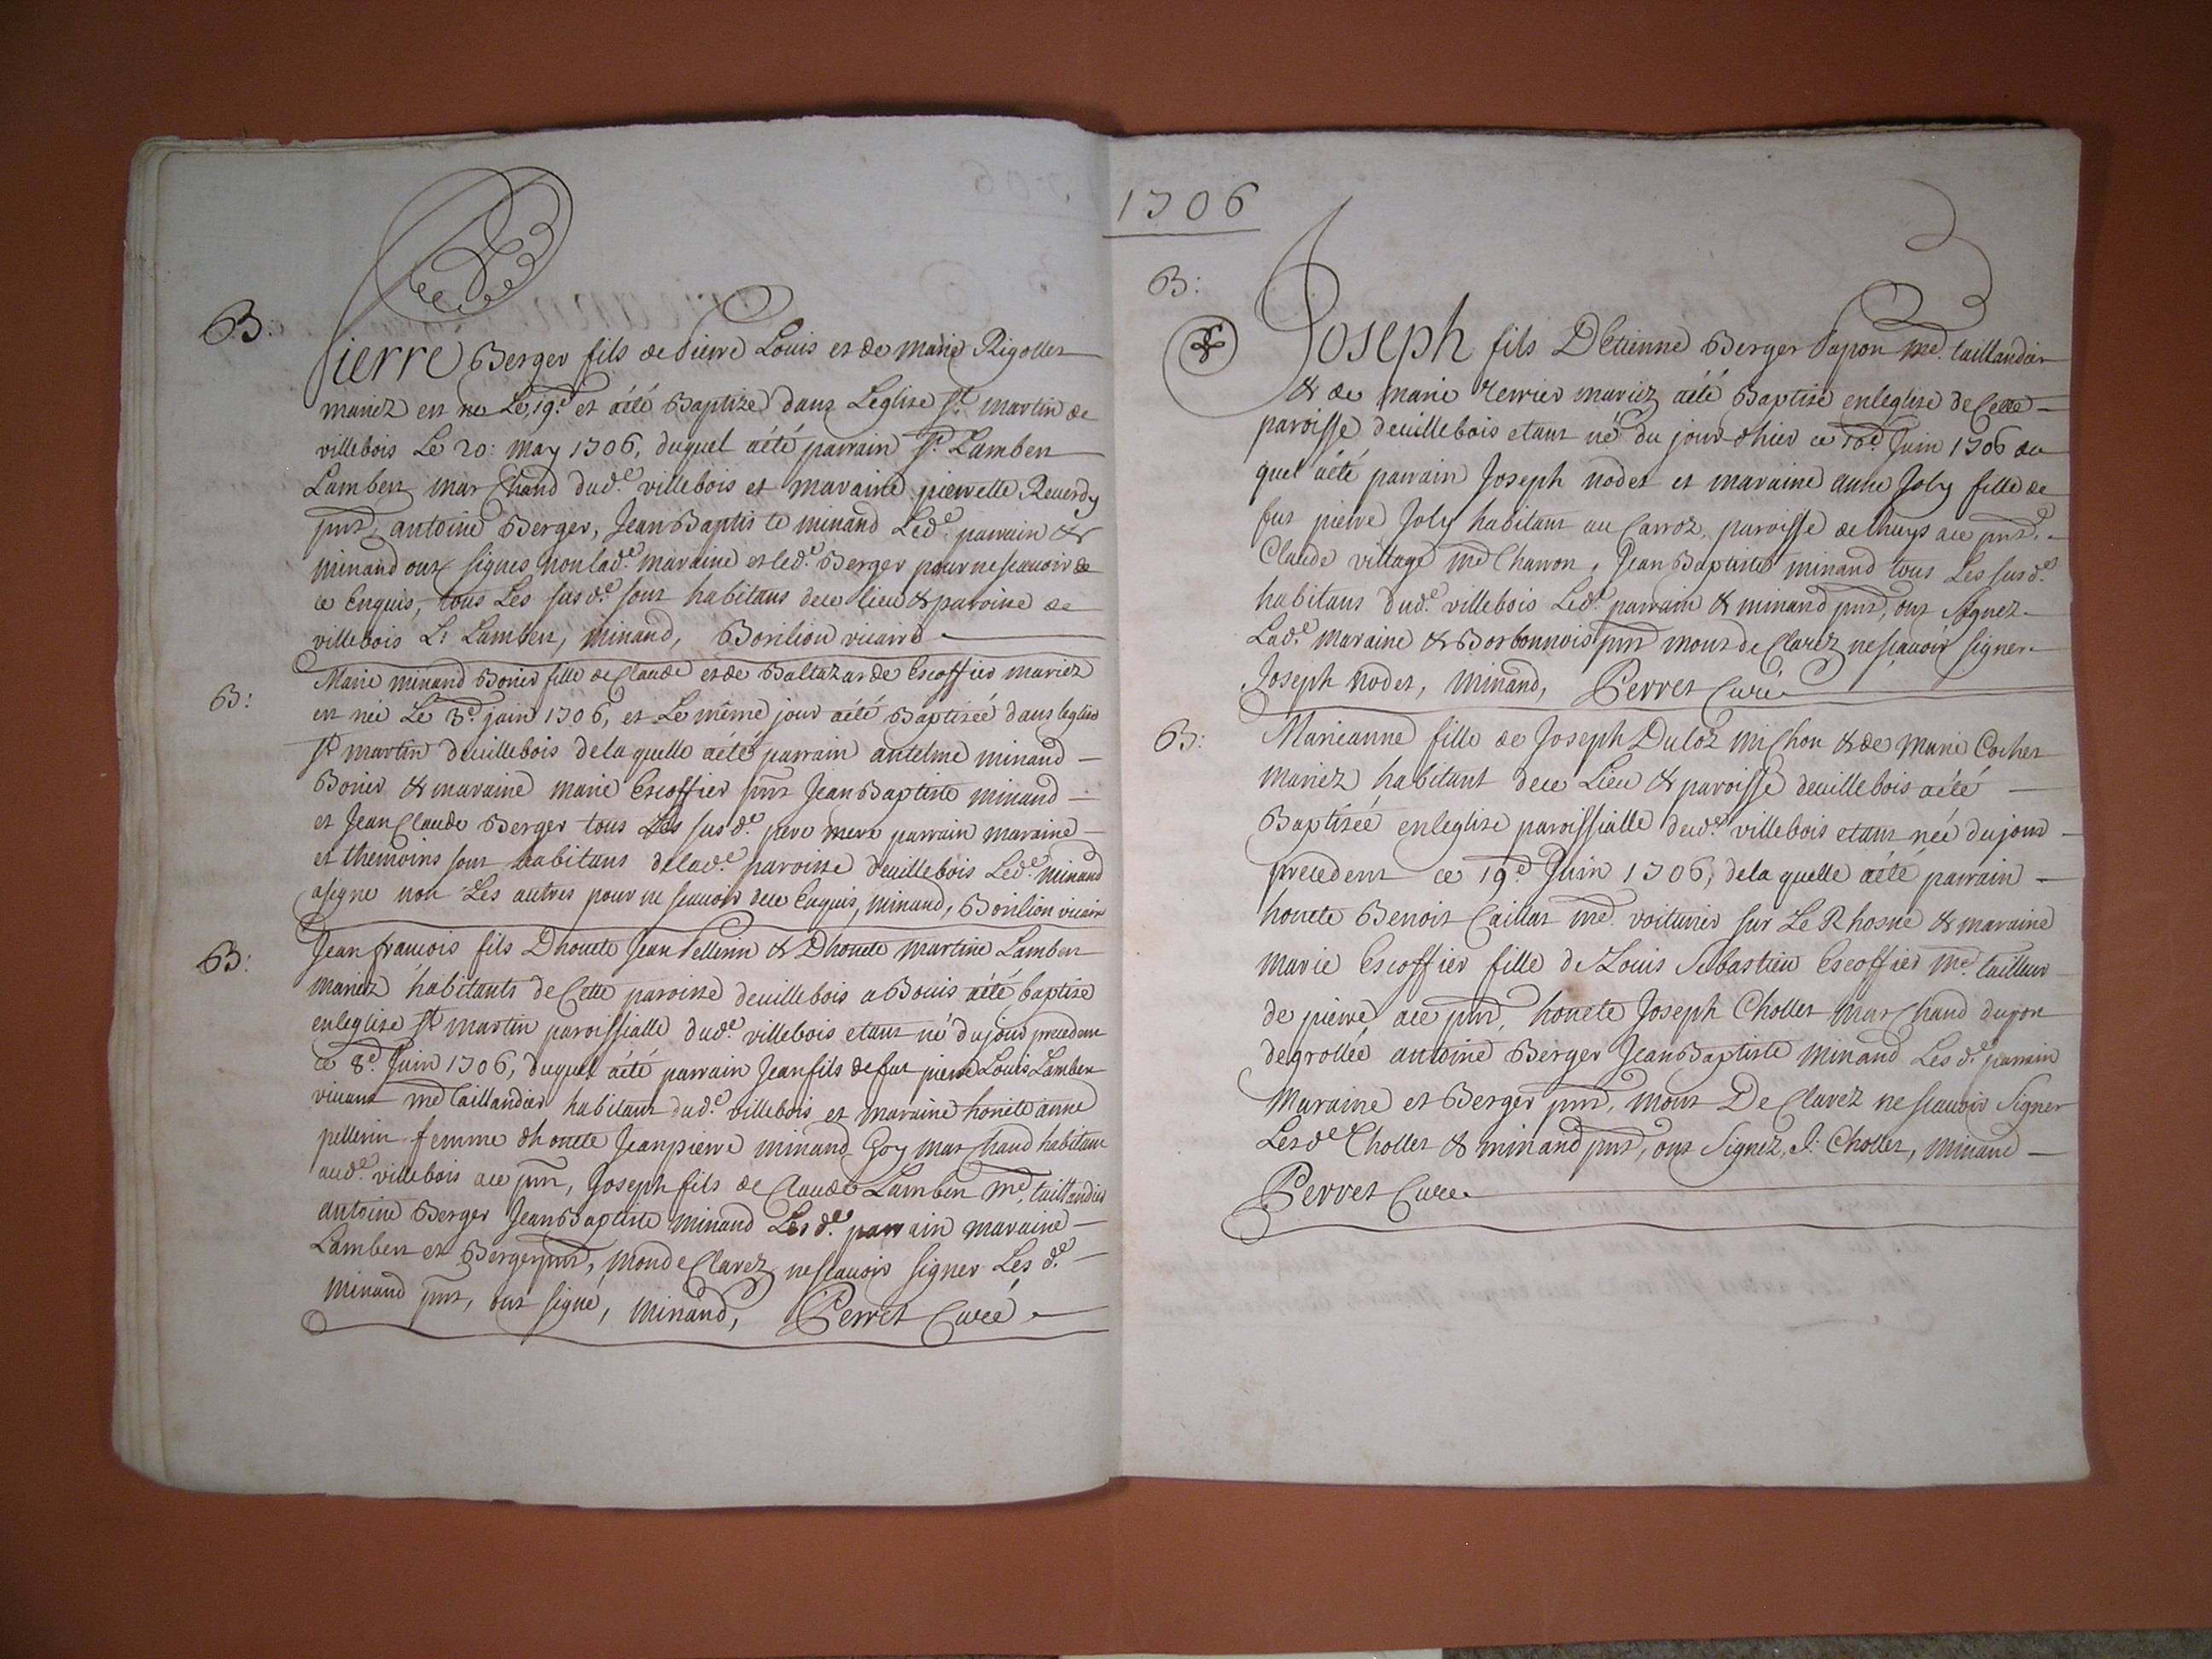 B:
Pierre Berger fils de Pierre Louis et de Marie Rigollet
mariez est né Le 19.e et aété Baptizé dans Leglise St. martin de
villebois Le 20: may 1706, duquel aété parrain Sr. Lambert
Lambert marchand dud.t villebois et maraine pierrette Reverdy
pnt, antoine Berger, Jean Baptiste minand Led.t parrain &
minand ont signes non lad.e maraine et led.t Berger pour ne scavoir de
ce Enquis, tous Les susd.t sont habitans de ce lieu & paroisse de
villebois L: Lambert, minand, vicaire
B:
Marie minand Bonier fille de Claude et de Baltazarde Escoffier mariez
est née Le 3.e juin 1706, et Le même jour aété Baptisée dans leglise
St martin devillebois dela quelle aété parrain antelme minand
Bonier & maraine marie Escoffier pnts Jean Baptiste minand
et Jean Claude Berger tous Les susd.t pere mere parrain maraine
et themoins sont habitans delad.e paroisse devillebois Led.t minand
asigne non Les autres pour ne scavoir de ce Enquis, minand, vicaire
B:
Jean francois fils Dhonete Jean Pellerin & Dhonete martine Lambert
mariez habitants de Cette paroisse devillebois a Bouis aété baptisé
enleglise St martin paroissialle dud.t villebois etant né dujour precedent
ce 8.e Juin 1706, duquel aété parrain Jean fils de fut pierre Louis Lambert
vivant me taillandier habitant dud.t villebois et maraine honete anne
pellerin femme dhonete Jean pierre minand Goy marchand habitant
aud.t villebois ace pnt, Joseph fils de Claude Lambert me. taillandier
antoine Berger Jean Baptiste minand Lesd.t parrain maraine
Lambert et Berger pnts, mon de Clarez ne scavoir signer Les d.t
minand pnt, ont signé, minand, Perret Curé
1706
B:
Joseph fils D'Etienne Berger Papon me. taillandier
& de marie mariez aété Baptisé enleglise de Cette
paroisse devillebois etant né du jour dhier ce 16.e Juin 1706 du
quel aété parrain Joseph nodet et maraine anne Joly fille de
fut pierre Joly habitant au Carroz, paroisse de lhuys ace pnts,
Claude village me Charron, Jean Baptiste minand tous Les susd.t
habitans dud.t villebois Led.t parrain & minand pnt, ont signez
Lad.e maraine & Borbonnois pnt mont de Clarez ne scavoir signer
Joseph nodet, minand, Perret Curé
B:
Marieanne fille de Joseph Duloz michon & de marie Cochet
mariez habitant de ce Lieu & paroisse devillebois aété
Baptisée enleglise paroissialle dud.t villebois etant née dujour
precedent ce 19.e Juin 1706, dela quelle aété parrain
honete Benoit Caillat me. voiturier sur Le Rhosne & maraine
marie Escoffier fille de Louis Sebastien Escoffier me. tailleur
de pierre ace pnt, honete Joseph Chollet marchand dupon
degrollée antoine Berger Jean Baptiste minand Lesd.t parrain
maraine et Berger pnts, mont De Clarez ne scavoir Signer
Lesd.t Chollet & minand pnts, ont Signez, J: Chollet, minand
Perret Curé